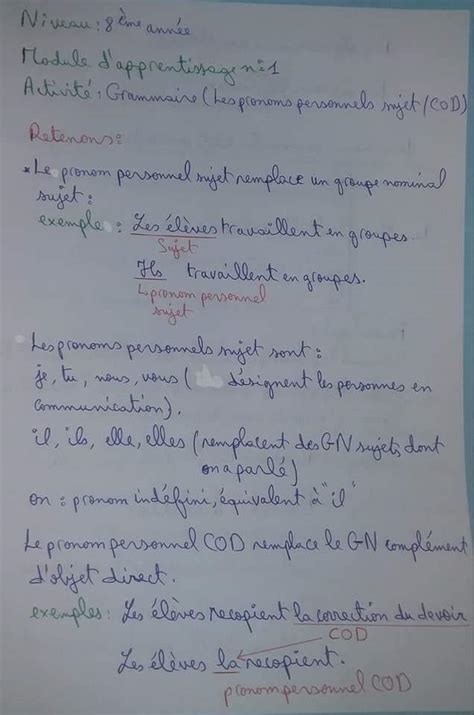 Niveau : 8ème année
Module d'apprentissage n°1
Activité : Grammaire (Les pronoms personnels sujet/COD)
Retenons :
* Le pronom personnel sujet remplace un groupe nominal
sujet :
exemple : Les élèves travaillent en groupes.
Sujet
Ils travaillent en groupes.
↳ pronom personnel
sujet
Les pronoms personnels sujet sont :
je, tu, nous, vous ( désignent les personnes en
communication).
il, ils, elle, elles (remplacent des GN sujets dont
on a parlé)
on : pronom indéfini, équivalent à "il"
Le pronom personnel COD remplace le GN complément
d'objet direct.
exemples : Les élèves recopient la correction du devoir
COD
Les élèves la recopient.
pronom personnel COD